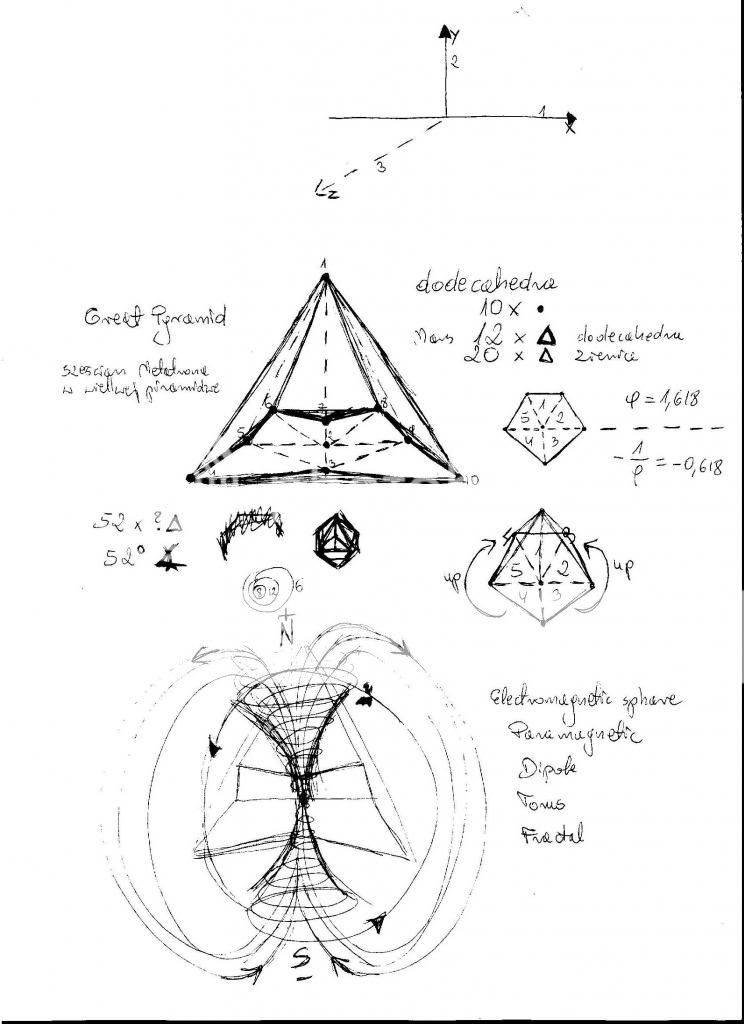 Y
2
1
X
3
z
1
Great Pyramid
dodecahedra
10 x •
12 x △ dodecahedra
20 x △
sześcian Metatrona
w wielkiej piramidzie
6 7 8
5 2 9
3
10
5 1 2
4 3
φ = 1,618
- 1/φ = -0,618
52 x ? △
52°
6
up
5 1 2
4 3
up
+
N
Electromagnetic sphare
Paramagnetic
Dipole
Torus
Fractal
S
-